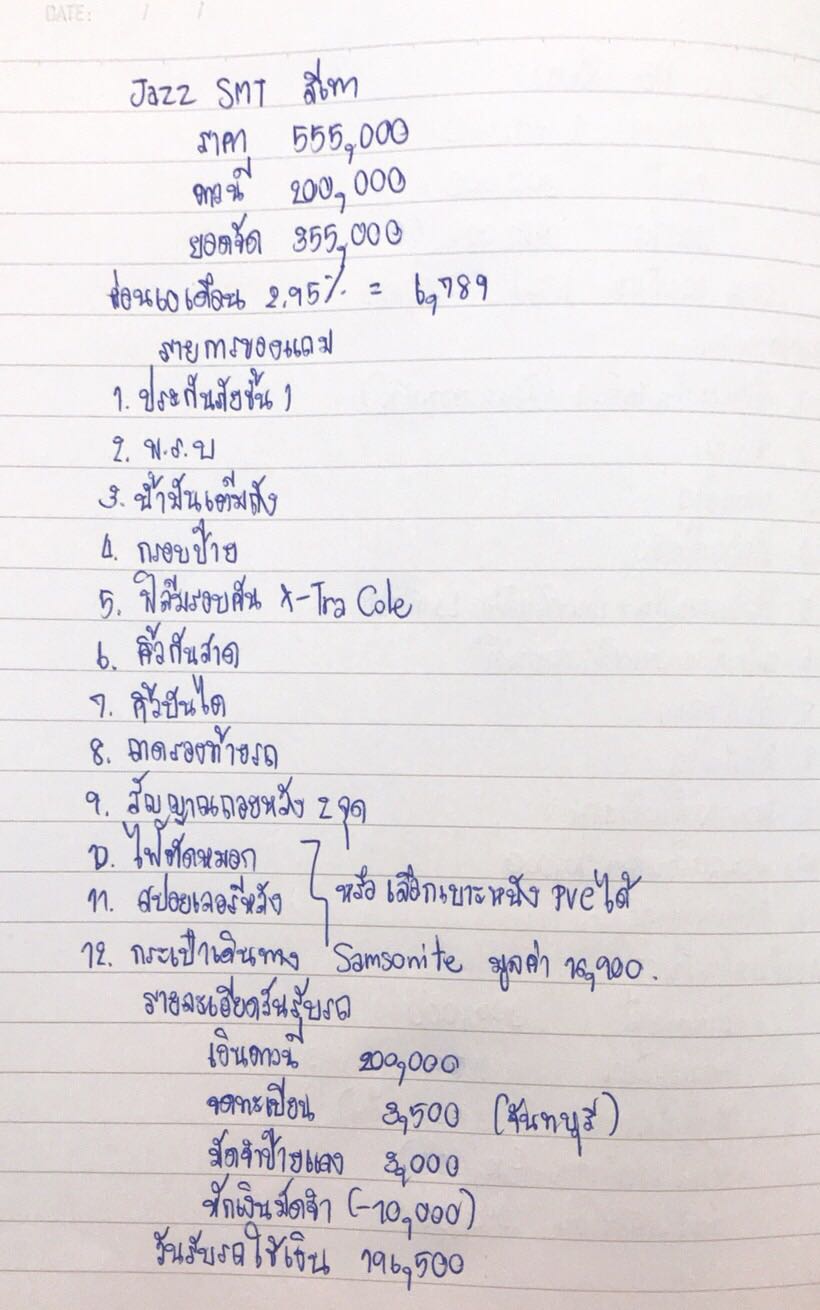 DATE: / /
Jazz SMT สีเทา
ราคา 555,000
ดาวน์ 200,000
ยอดจัด 355,000
ผ่อน 60 เดือน 2.95% = 6,789
รายการของแถม
1. ประกันภัยชั้น 1
2. พ.ร.บ
3. น้ำมันเต็มถัง
4. กรอบป้าย
5. ฟิล์มรอบคัน X-Tra Cole
6. คิ้วกันสาด
7. คิ้วบันได
8. ถาดรองท้ายรถ
9. สัญญาณถอยหลัง 2 จุด
10. ไฟตัดหมอก
11. สปอยเลอร์หลัง หรือ เลือกเบาะหนัง PVC ได้
12. กระเป๋าเดินทาง Samsonite มูลค่า 16,900.
รายละเอียดวันรับรถ
เงินดาวน์ 200,000
จดทะเบียน 3,500 (จันทบุรี)
มัดจำป้ายแดง 3,000
หักเงินมัดจำ (-10,000)
วันรับรถใช้เงิน 196,500